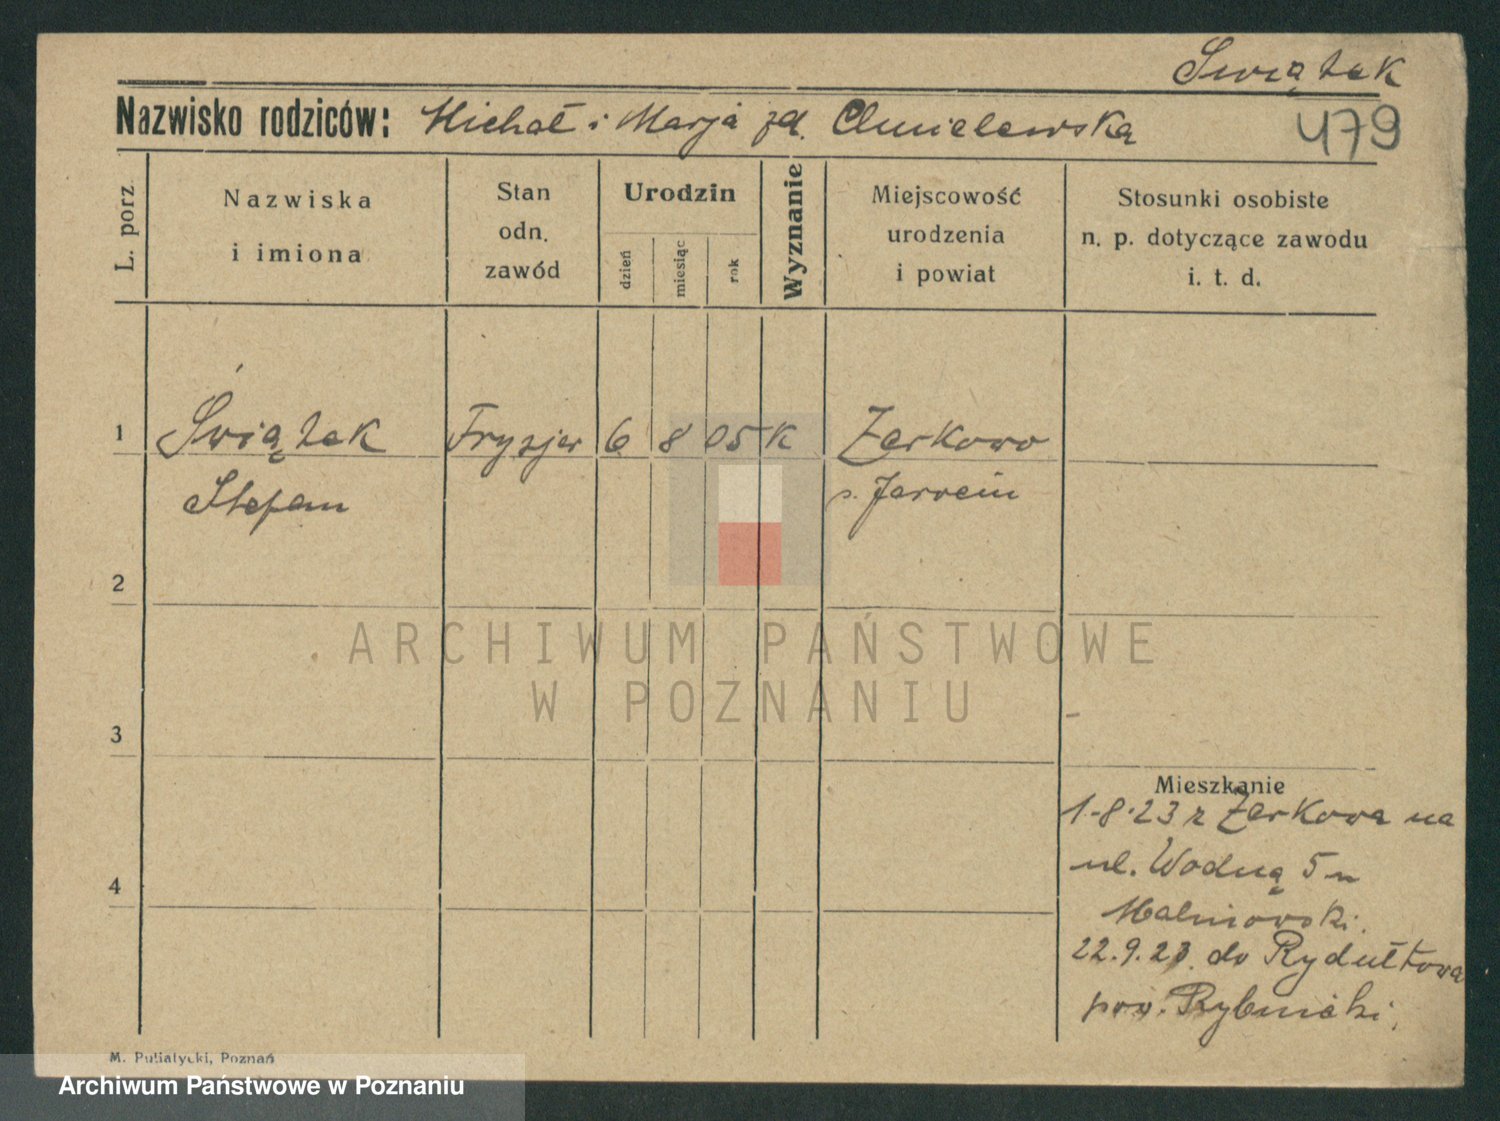 Świątek
Nazwisko rodziców: Michał i Marja zd. Chmielewska
479
L. porz.
Nazwiska
i imiona
Stan
odn.
zawód
Urodzin
dzień
miesiąc
rok
Wyznanie
Miejscowość
urodzenia
i powiat
Stosunki osobiste
n. p. dotyczące zawodu
i. t. d.
1 Świątek Fryzjer 6 8 05 K Żerkowo
Stefan p. Jarocin
2
ARCHIWUM PAŃSTWOWE
W POZNANIU
3
Mieszkanie
1-8-23 z Żerkowa na
ul. Wodną 5 u
4
Malinowski.
22.9.23. do Rydułtowa
pow. Rybnicki.
M. Puliatycki, Poznań
Archiwum Państwowe w Poznaniu